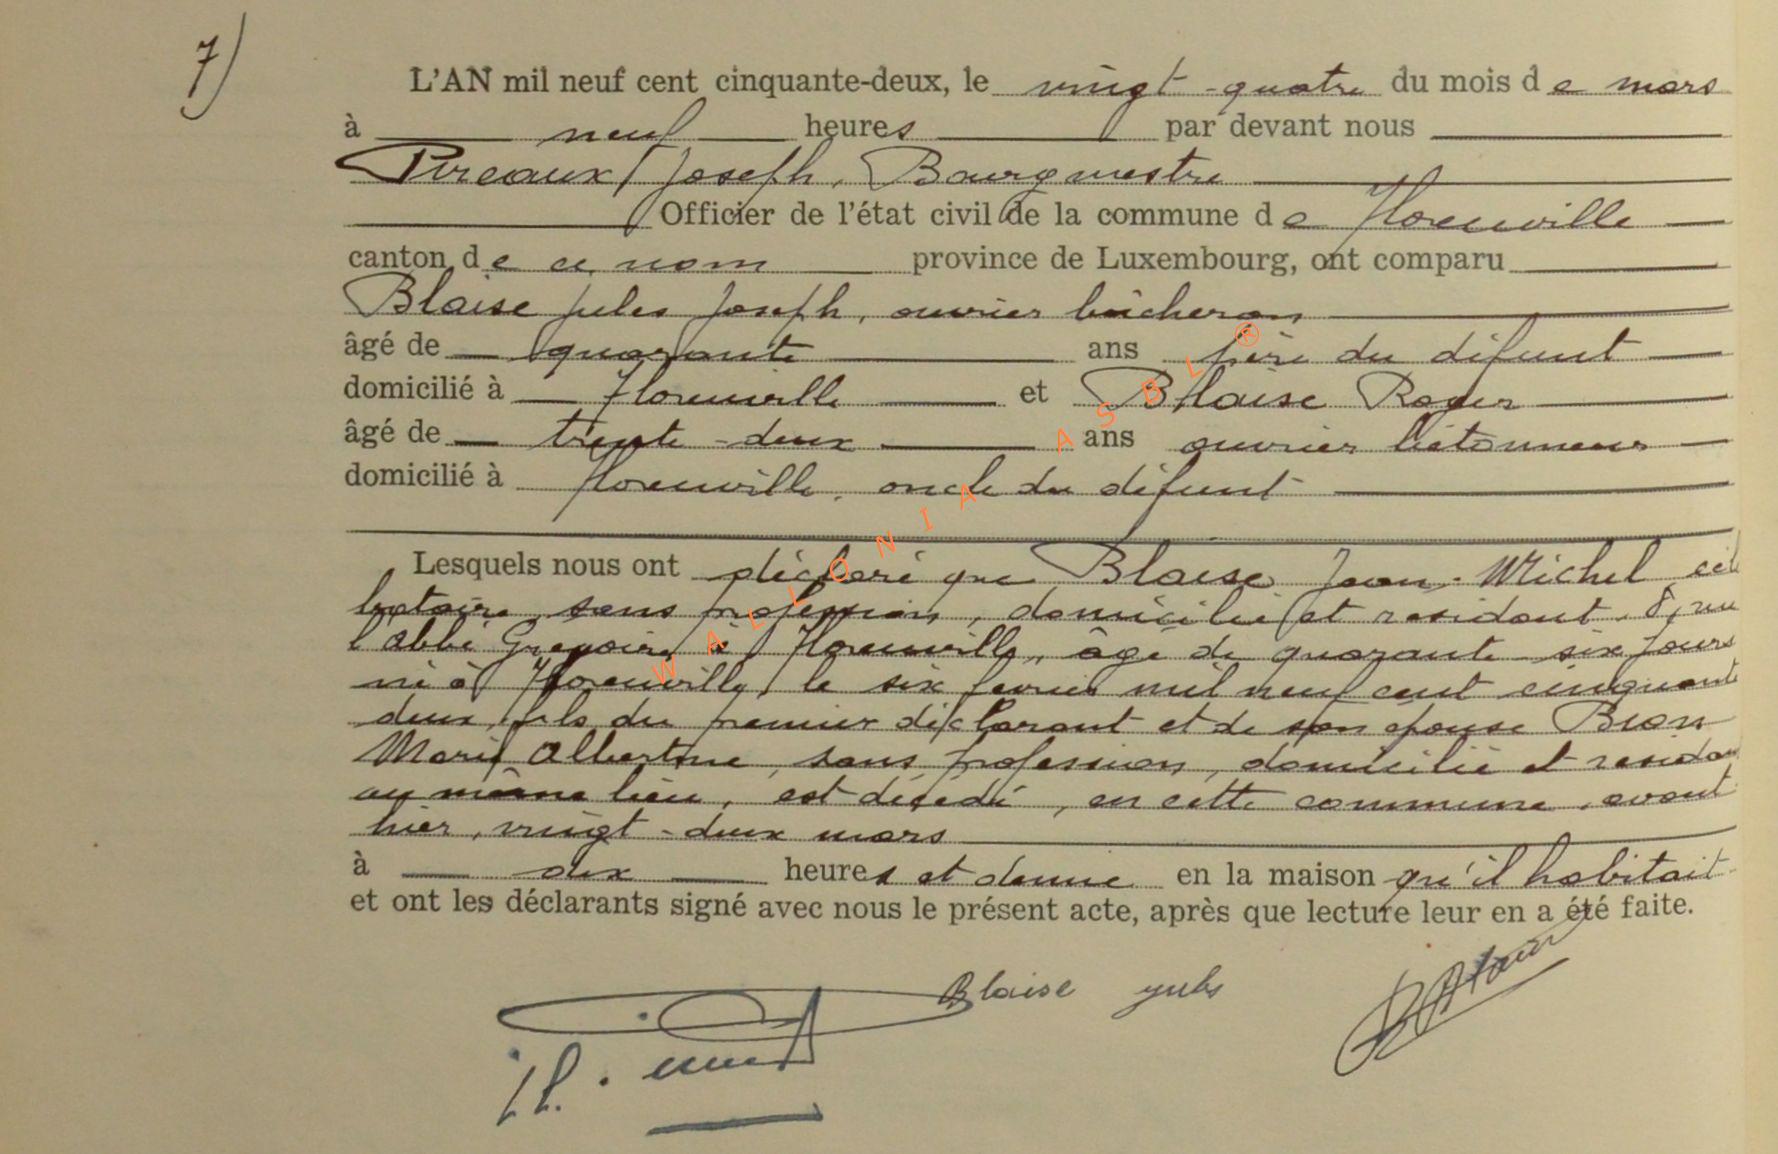 7)
L'AN mil neuf cent cinquante-deux, le vingt-quatre du mois de mars
à neuf heures par devant nous
Pireaux Joseph, Bourgmestre
Officier de l'état civil de la commune de Florenville
canton de ce nom province de Luxembourg, ont comparu
Blaise Jules Joseph, ouvrier bûcheron
âgé de quarante ans père du défunt
domicilié à Florenville et Blaise Roger
âgé de trente-deux ans ouvrier bétonneur
domicilié à Florenville, oncle du défunt
Lesquels nous ont déclaré que Blaise Jean-Michel, céli
bataire, sans profession, domicilié et résidant 8, rue
l'abbé Grégoire à Florenville, âgé de quarante six jours
né à Florenville, le six février mil neuf cent cinquante
deux, fils du premier déclarant et de son épouse
Marie Albertine, sans profession, domicilié et résidan
au même lieu, est décédé, en cette commune, avant
hier, vingt-deux mars
à dix heures et demie en la maison qu'il habitait
et ont les déclarants signé avec nous le présent acte, après que lecture leur en a été faite.
Blaise Jules
WALLONIA ASBL ®